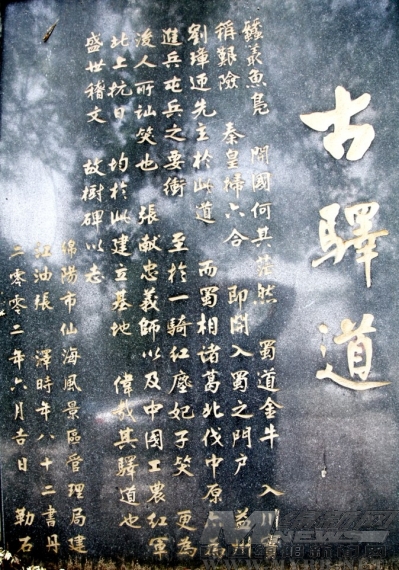 古驛道
蠶叢魚鳧 開國何其茫然 蜀道金牛 入川
稱艱險 秦皇掃六合 即開入蜀之門户 益州
劉璋迎先主於此道 而蜀相诸葛北伐中原 亦為
進兵屯兵之要衝 至於一騎红塵妃子笑 更為
後人所訕笑也 張献忠義師以及中國工農红軍
北上抗日 均於此建立基地 偉哉其驛道也
盛世稽文 故樹碑以志
綿陽市仙海風景區管理局建
江油張澤時年八十二書丹
二零零二年六月吉日 勒石
NEWS